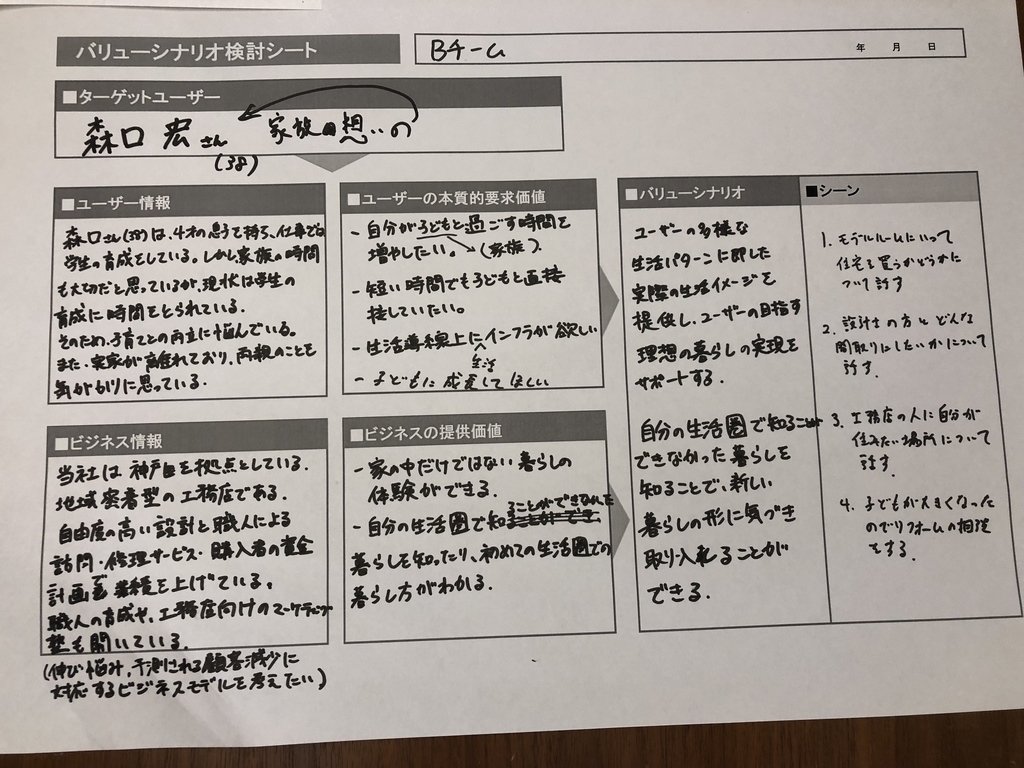 バリューシナリオ検討シート
Bチーム
年 月 日
■ターゲットユーザー
森口 宏さん 家族想いの
(38)
■ユーザー情報
森口さん(38)は、4才の息子を持ち、仕事でも
学生の育成をしている。しかし家族の時間
も大切だと思っているが、現状は学生の
育成に時間をとられている。
そのため、子育てとの両立に悩んでいる。
また、実家が離れており、両親のことも
気がかりに思っている。
■ユーザーの本質的要求価値
- 自分が子どもと過ごす時間を
増やしたい。 (家族)
- 短い時間でも子どもと直接
接していたい。
- 生活導線上に生活インフラが欲しい
- 子どもに成長してほしい
■ビジネス情報
当社は神戸を拠点としている。
地域密着型の工務店である。
自由度の高い設計と職人による
訪問・修理サービス・購入者の資金
計画 業績を上げている。
職人の育成や、工務店向けのマーケティング
塾も開いている。
(伸び悩み、予測される顧客減少に
対応するビジネスモデルを考えたい)
■ビジネスの提供価値
- 家の中だけではない暮らしの
体験ができる。
- 自分の生活圏で知ることができなかった
暮らしを知ったり、初めての生活圏での
暮らし方がわかる。
■バリューシナリオ
ユーザーの多様な
生活パターンに即した
実際の生活イメージを
提供し、ユーザーの目指す
理想の暮らしの実現を
サポートする。
自分の生活圏で知ること
できなかった暮らしを
知ることで、新しい
暮らしの形に気づき
取り入れることが
できる。
■シーン
1. モデルルームにいって
住宅を買うかどうかに
ついて話す
2. 設計士の方とどんな
間取りにしたいかについて
話す.
3. 工務店の人に自分が
住みたい場所について
話す.
4. 子どもが大きくなった
のでリフォームの相談
をする.